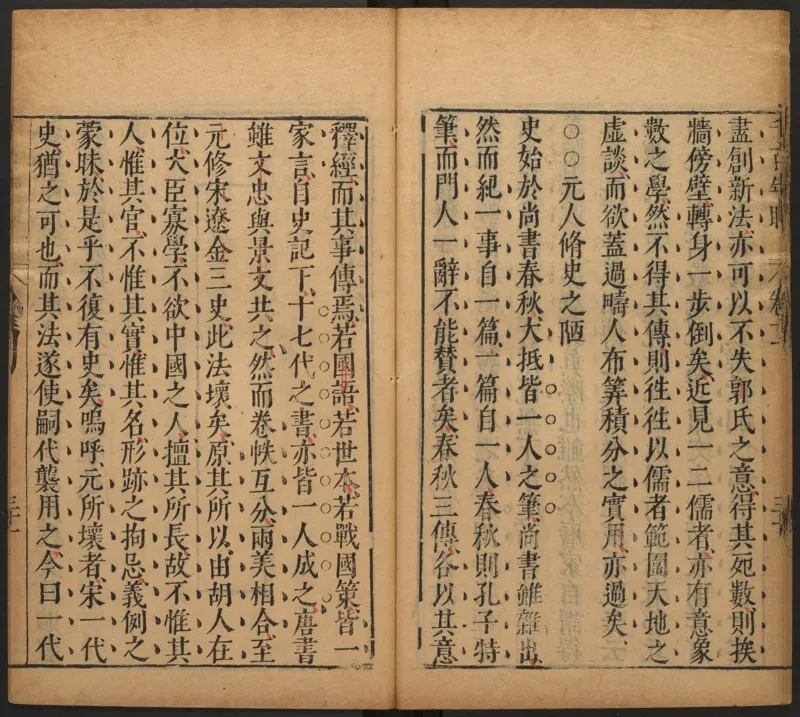 盡創新法亦可以不失郭氏之意得其死數則挨
牆傍壁轉身一步倒矣近見一二儒者亦有意象
數之學然不得其傳則徃徃以儒者範圍天地之
虛談而欲蓋過疇人布筭積分之實用亦過矣
○○元人脩史之陋
史始於尚書春秋大抵皆一人之筆尚書雖雜出
然而紀一事自一篇一篇自一人春秋則孔子特
筆而門人一辭不能賛者矣春秋三傳各以其意
釋經而其事傳焉若國語若世本若戰國策皆一
家言自史記下十七代之書亦皆一人成之唐書
雖文忠與景文共之然而卷帙互分兩美相合至
元修宋遼金三史此法壞矣原其所以由胡人在
位大臣寡學不欲中國之人擅其所長故不惟其
人惟其官不惟其實惟其名形跡之拘忌義例之
蒙昧於是乎不復有史矣嗚呼元所壞者宋一代
史猶之可也而其法遂使嗣代襲用之今曰一代
三十一